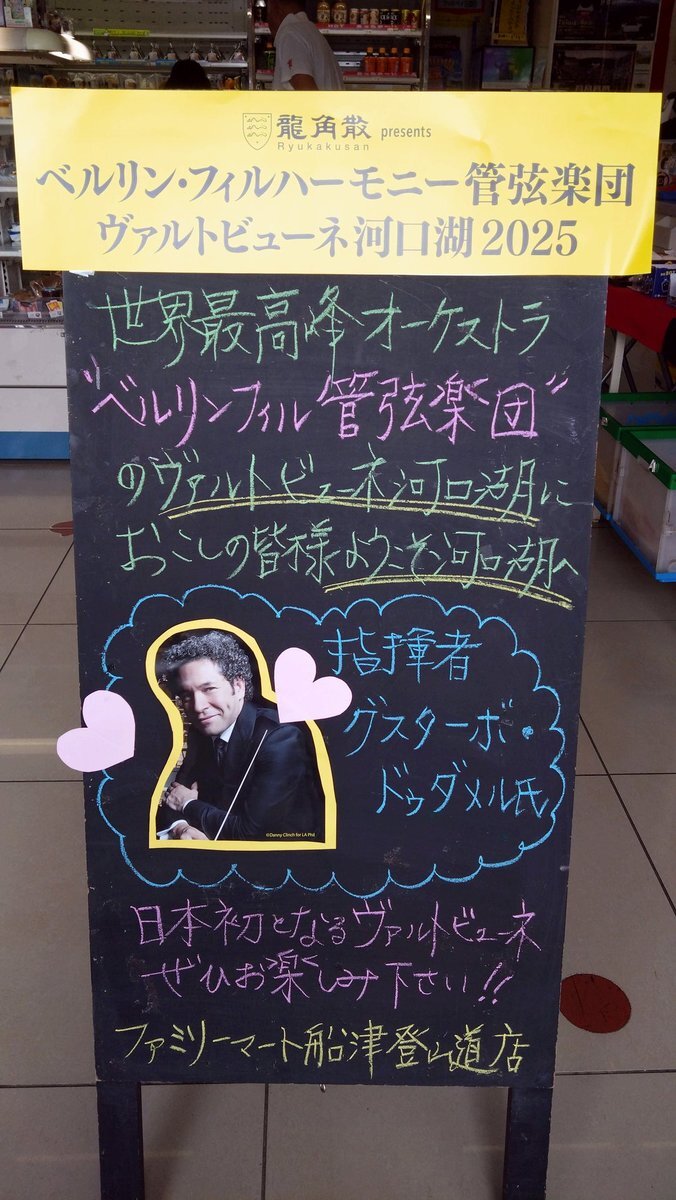 龍角散 presents
Ryukakusan
ベルリン・フィルハーモニー管弦楽団
ヴァルトビューネ河口湖2025
世界最高峰オーケストラ
"ベルリンフィル管弦楽団"
のヴァルトビューネ河口湖に
おこしの皆様ようこそ河口湖へ
指揮者
グスターボ・
ドゥダメル氏
©Danny Clinch for LA Phil
日本初となるヴァルトビューネ
ぜひお楽しみ下さい!!
ファミリーマート船津登山道店